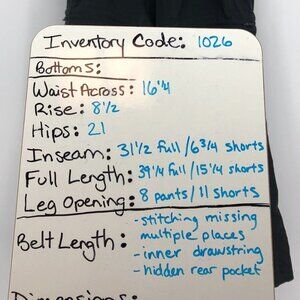 Inventory Code: 1026
Bottoms:
Waist Across: 16 1/4
Rise: 8 1/2
Hips: 21
Inseam: 31 1/2 full / 6 3/4 shorts
Full Length: 39 1/4 full / 15 1/4 shorts
Leg Opening: 8 pants / 11 shorts
Belt Length: -stitching missing
multiple places
-inner drawstring
-hidden rear pocket
Dimensions: